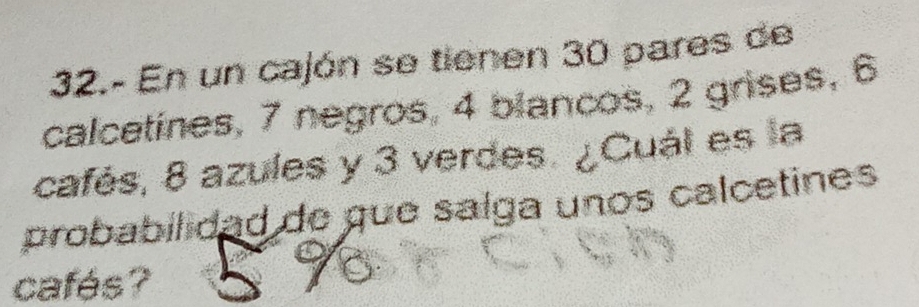 32.- En un cajón se tienen 30 pares de
calcetines, 7 negros, 4 blancos, 2 grises, 6
cafés, 8 azules y 3 verdes. ¿Cuál es la
probabilidad de que salga unos calcetines
cafés? 5%